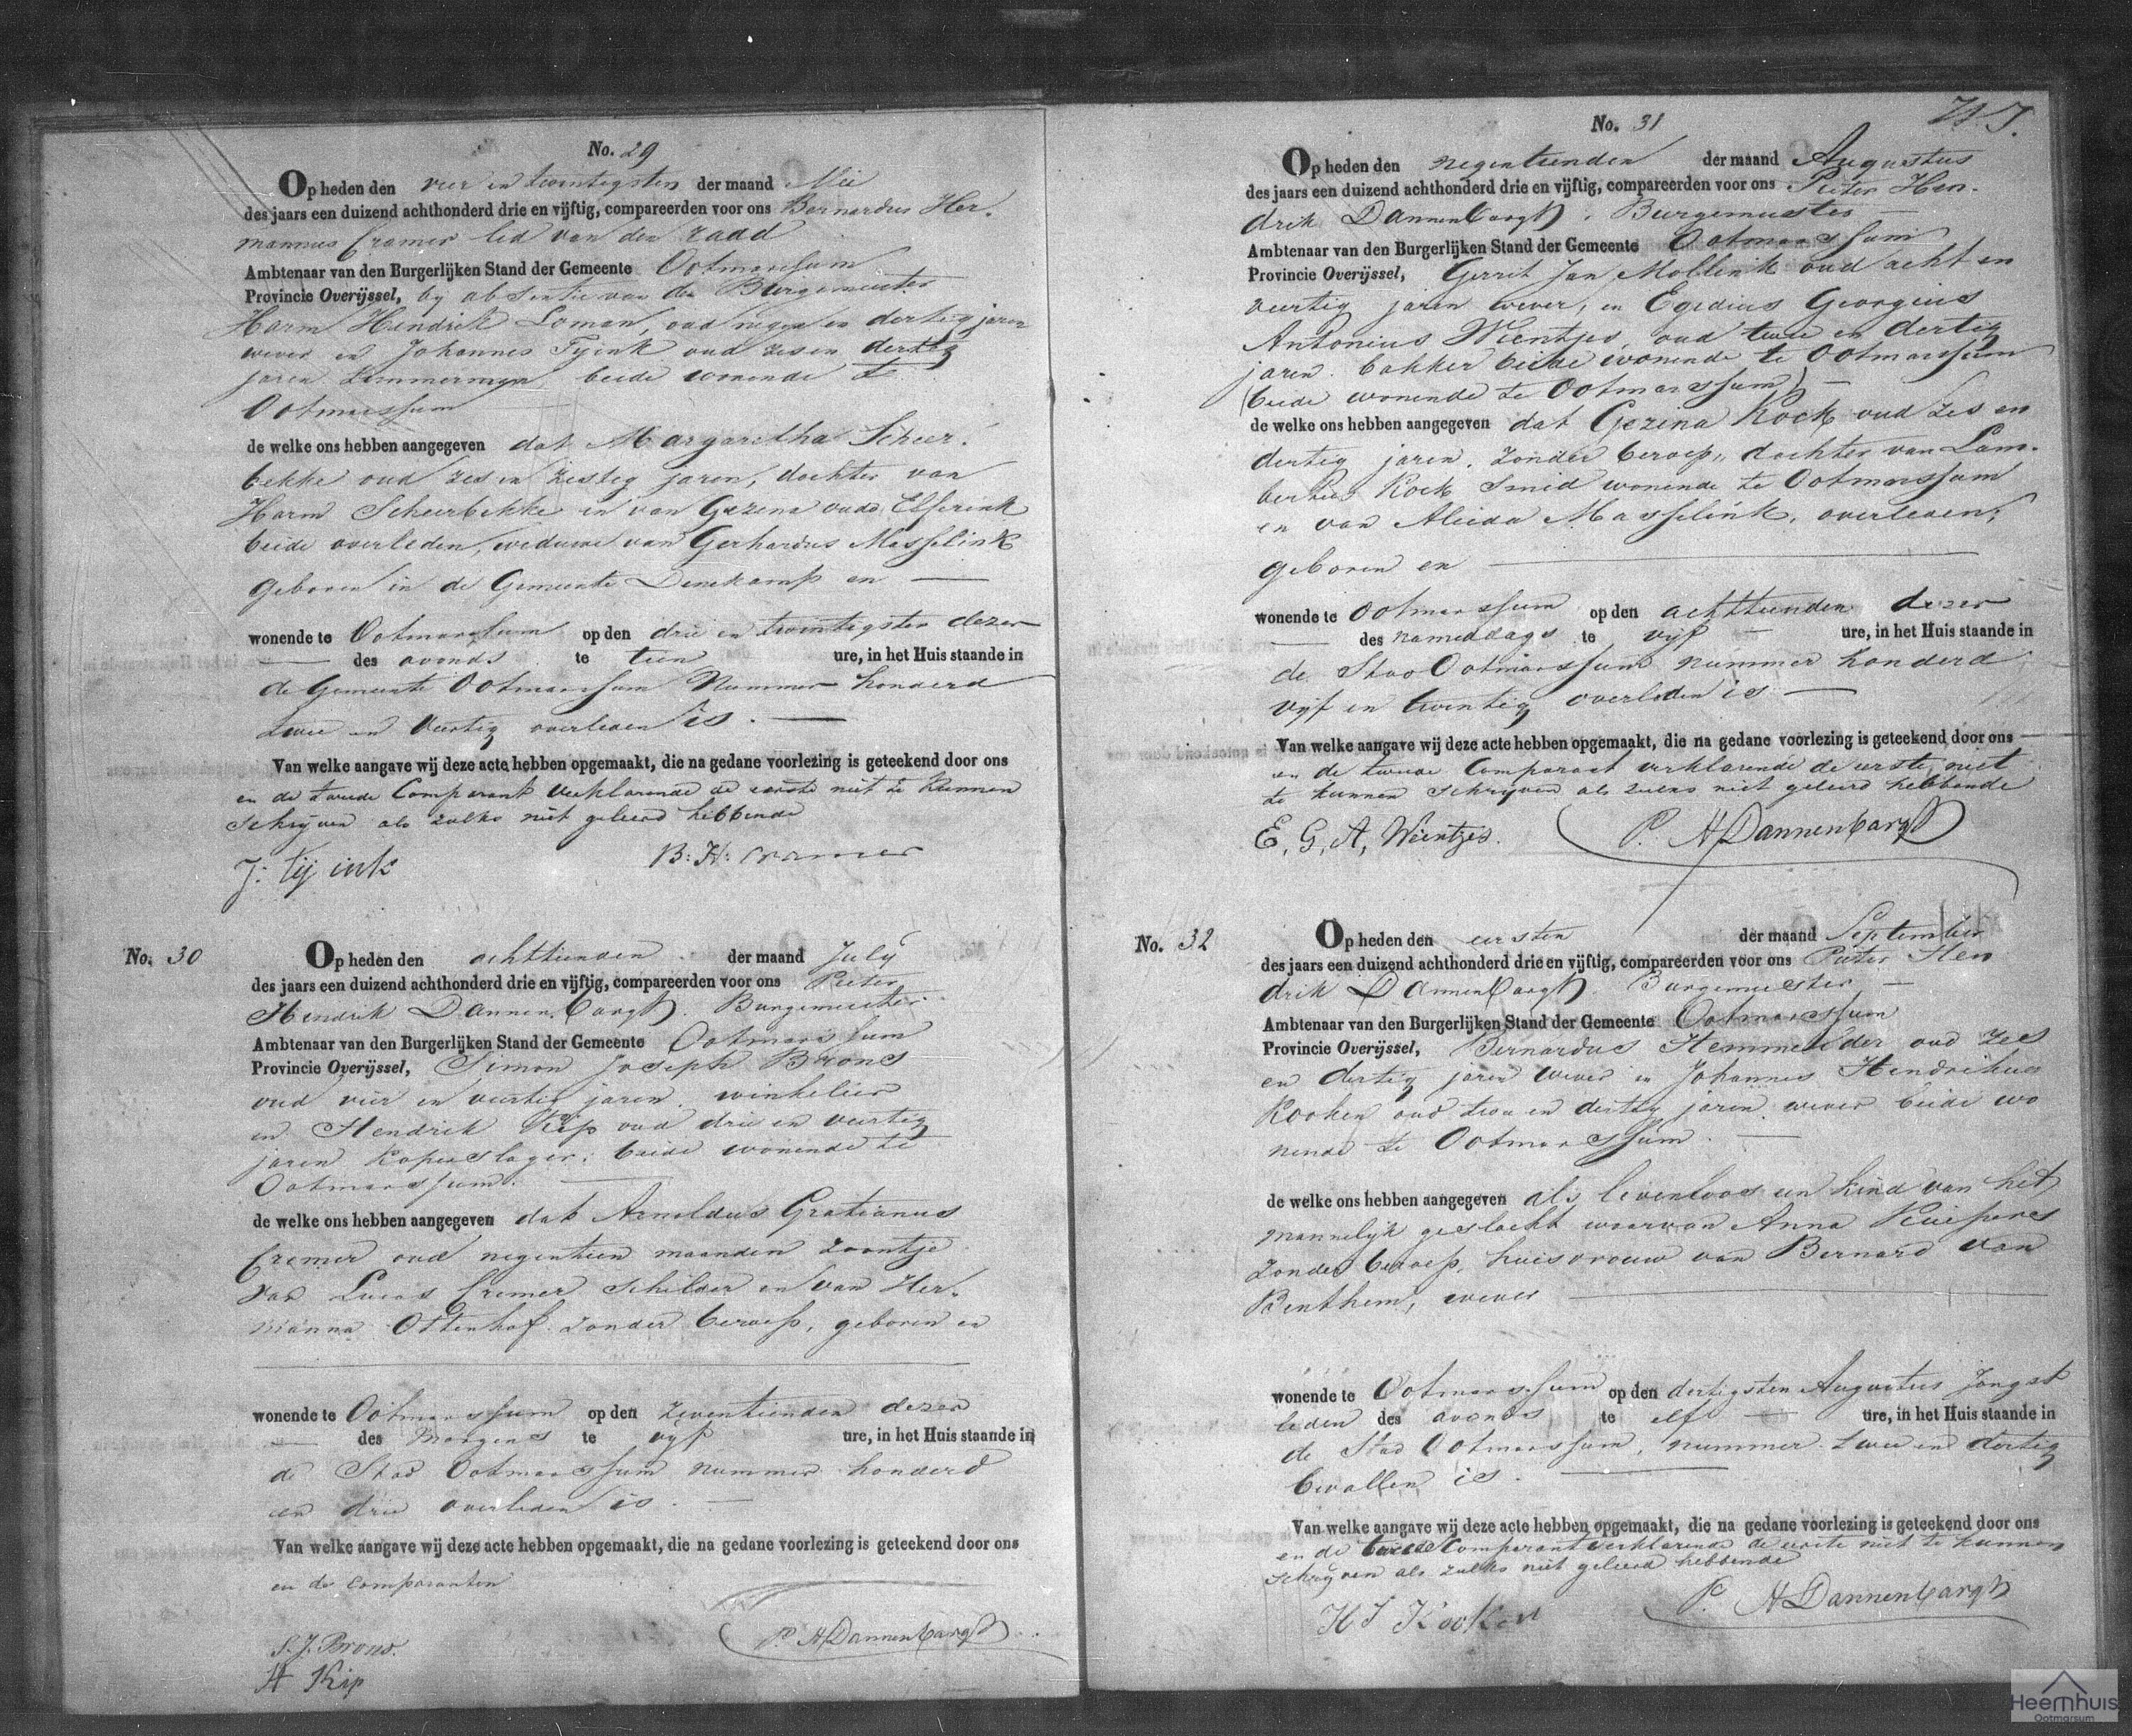 No. 29
Op heden den vier en twintigsten der maand Mei
des jaars een duizend achthonderd drie en vijftig, compareerden voor ons Bernardus Her-
mannus Cramer lid van den raad
Ambtenaar van den Burgerlijken Stand der Gemeente Ootmarssum
Provincie Overijssel, by absentie van den Burgemeester
Harm Hendrik Loman, oud negen en dertig jaren
wever en Johannes Tijink oud zes en dertig
jaren Timmerman, beide wonende te
Ootmarssum
de welke ons hebben aangegeven dat Margaretha Scheer-
bekke oud zes en zestig jaren, dochter van
Harm Scheerbekke en van Gezena oude Elferink
beide overleden, weduwe van Gerhardus Masselink
geboren in de Gemeente Denekamp en
wonende te Ootmarssum op den drie en twintigsten dezer
des avonds te tien ure, in het Huis staande in
de Gemeente Ootmarssum Nummer honderd
twee en veertig overleden is.
Van welke aangave wij deze acte hebben opgemaakt, die na gedane voorlezing is geteekend door ons
en de tweede Comparant verklarende de eerste niet te kunnen
schrijven als zulks niet geleerd hebbende
J: Tijink B: H: Cramer
No. 30
Op heden den achttienden der maand July
des jaars een duizend achthonderd drie en vijftig, compareerden voor ons Pieter
Hendrik Dannenbargh. Burgemeester
Ambtenaar van den Burgerlijken Stand der Gemeente Ootmarssum
Provincie Overijssel, Simon Joseph Brons
oud vier en veertig jaren. winkelier
en Hendrik Kip oud drie en veertig
jaren Koperslager. beide wonende te
Ootmarssum.
de welke ons hebben aangegeven dat Arnoldus Gratianus
Cremer oud negentien maanden zoontje
van Lucas Cremer Schilder en van Her-
manna Ottenhof zonder beroep, geboren en
wonende te Ootmarssum op den zeventienden dezer
des morgens te vyf ure, in het Huis staande in
de Stad Ootmarssum nummer honderd
en drie overleden is.
Van welke aangave wij deze acte hebben opgemaakt, die na gedane voorlezing is geteekend door ons
en de Comparanten
S. J. Brons. P. H Dannenbargh
H Kip
No. 31
Op heden den negentienden der maand Augustus
des jaars een duizend achthonderd drie en vijftig, compareerden voor ons Pieter Hen-
drik Dannenbargh. Burgemeester
Ambtenaar van den Burgerlijken Stand der Gemeente Ootmarssum
Provincie Overijssel, Gerrit Jan Mollink oud acht en
veertig jaren wever, en Egedius Georgius
Antonius Wientjes, oud twee en dertig
jaren. bakker beide wonende te Ootmarssum
(beide wonende te Ootmarssum)
de welke ons hebben aangegeven dat Gezina Kock oud zes en
dertig jaren. zonder beroep, dochter van Lam-
bertus Kock Smid wonende te Ootmarssum
en van Aleida Masselink, overleden,
geboren en
wonende te Ootmarssum op den achttienden dezer
des namiddags te vyf ure, in het Huis staande in
de Stad Ootmarssum nummer honderd
vyf en twintig overleden is
Van welke aangave wij deze acte hebben opgemaakt, die na gedane voorlezing is geteekend door ons
en de tweede Comparant verklarende de eerste niet
te kunnen schrijven als zulks niet geleerd hebbende
E, G, A, Wientjes. P. H Dannenbargh
No. 32
Op heden den eersten der maand September
des jaars een duizend achthonderd drie en vijftig, compareerden voor ons Pieter Hen
drik Dannenbargh. Burgemeester
Ambtenaar van den Burgerlijken Stand der Gemeente Ootmarssum
Provincie Overijssel, Bernardus Hemmelder oud zes
en dertig jaren wever en Johannes Hendrikus
Kooken oud twee en dertig jaren. wever beide wo
nende te Ootmarssum.
de welke ons hebben aangegeven als levenloos een kind van het
mannelyk geslacht waarvan Anna Kuipers
zonder beroep, huisvrouw van Bernard van
Benthem, wever
wonende te Ootmarssum op den dertigsten Augustus jongst
leden des avonds te elf ure, in het Huis staande in
de Stad Ootmarssum, nummer twee en dertig
bevallen is.
Van welke aangave wij deze acte hebben opgemaakt, die na gedane voorlezing is geteekend door ons
en de tweede Comparant verklarende de eerste niet te kunnen
schrijven als zulks niet geleerd hebbende
H J Kooken P. H Dannenbargh
Heemhuis
Ootmarsum